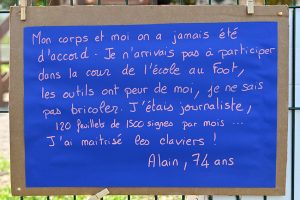 Mon corps et moi on a jamais été
d'accord - Je n'arrivais pas à participer
dans la cour de l'école au foot,
les outils ont peur de moi, je ne sais
pas bricoler. J'étais journaliste,
120 feuillets de 1500 signes par mois ...
J'ai maitrisé les claviers !
Alain, 74 ans